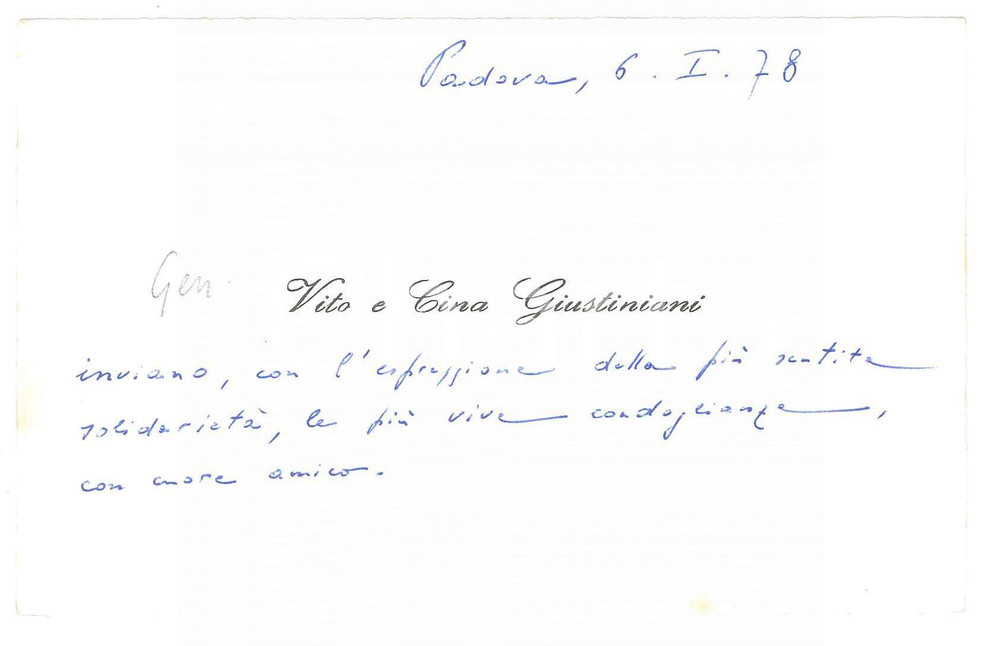 Padova, 6. I. 78
Gen.
Vito e Cina Giustiniani
inviano, con l'espressione della più sentita
solidarietà, le più vive condoglianze,
con cuore amico.